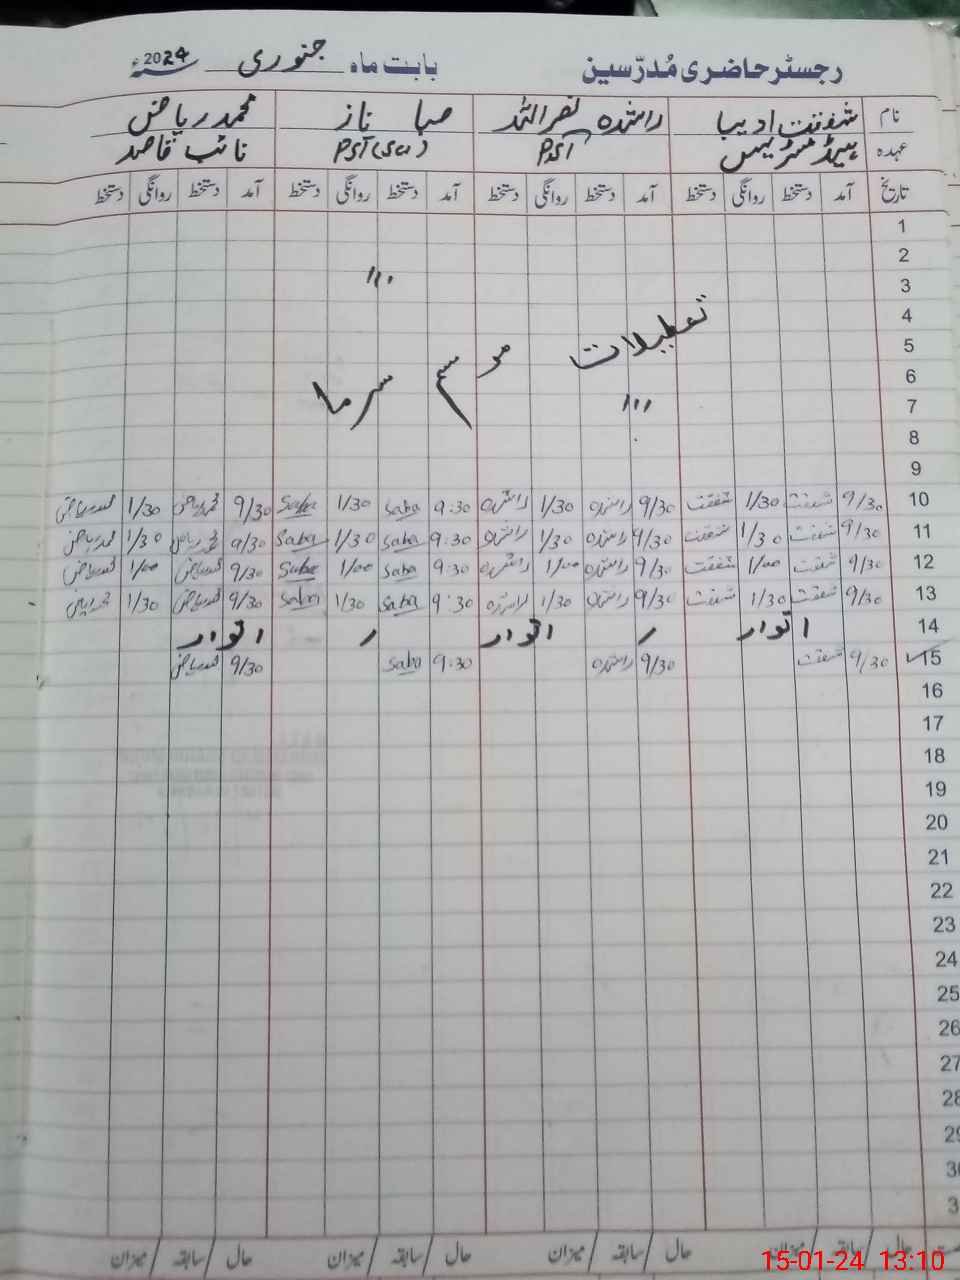 رجسٹر حاضری مُدرّسین بابت ماہ جنوری سنہ 2024ء
نام شفقت ادیبا راشدہ نصراللہ صبا ناز محمد ریاض
عہدہ ہیڈ مسٹریس PST PST (SCI) نائب قاصد
تاریخ آمد دستخط روانگی دستخط آمد دستخط روانگی دستخط آمد دستخط روانگی دستخط آمد دستخط روانگی دستخط
1
2
3
4
5
6
7
تعطیلات موسم سرما
8
9
10 9/30 شفقت 1/30 شفقت 9/30 راشدہ 1/30 راشدہ 9:30 Saba 1/30 Saba 9/30 محمد ریاض 1/30 محمد ریاض
11 9/30 شفقت 1/30 شفقت 9/30 راشدہ 1/30 راشدہ 9:30 Saba 1/30 Saba 9/30 محمد ریاض 1/30 محمد ریاض
12 9/30 شفقت 1/00 شفقت 9/30 راشدہ 1/00 راشدہ 9:30 Saba 1/00 Saba 9/30 محمد ریاض 1/00 محمد ریاض
13 9/30 شفقت 1/30 شفقت 9/30 راشدہ 1/30 راشدہ 9:30 Saba 1/30 Saba 9/30 محمد ریاض 1/30 محمد ریاض
14 اتوار / اتوار / اتوار
15 9/30 شفقت 9/30 راشدہ 9:30 Saba 9/30 محمد ریاض
16
17
18
19
20
21
22
23
24
25
26
27
28
29
30
3
حال / سابقہ / میزان حال / سابقہ / میزان حال / سابقہ / میزان حال / سابقہ / میزان
15-01-24 13:10